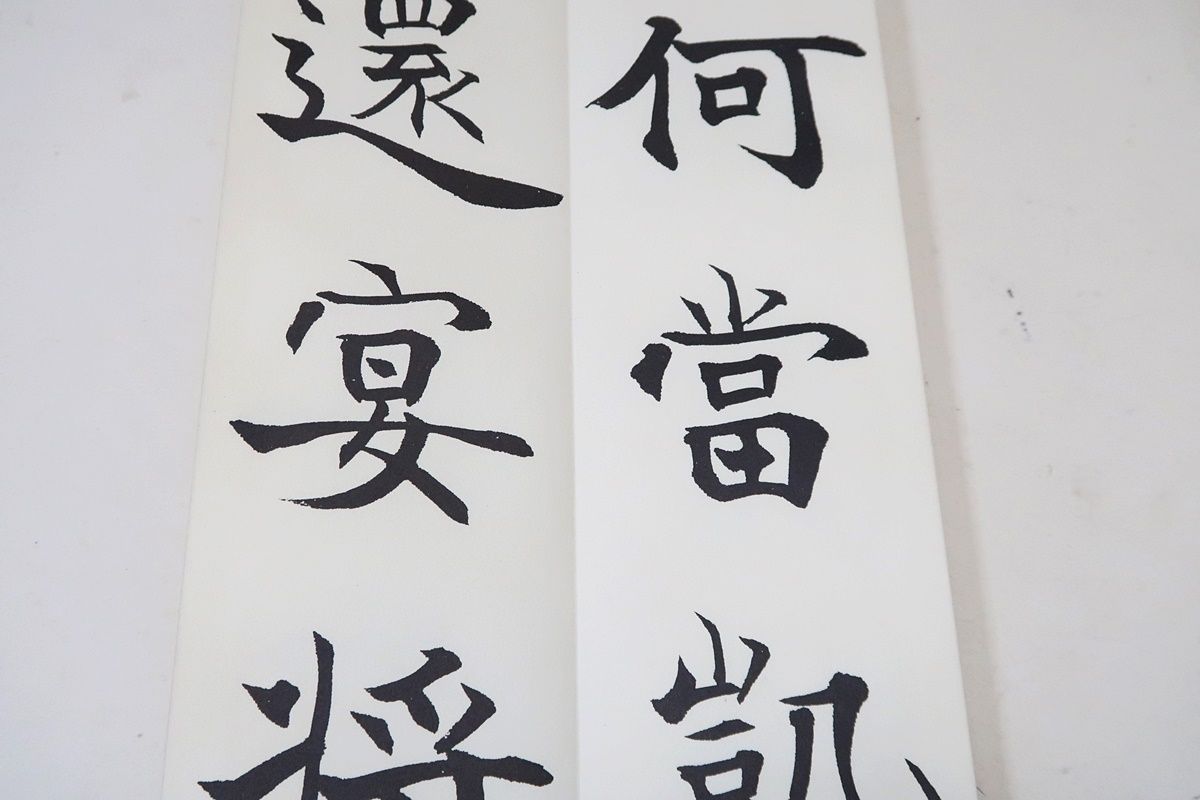 何當凱
還宴將